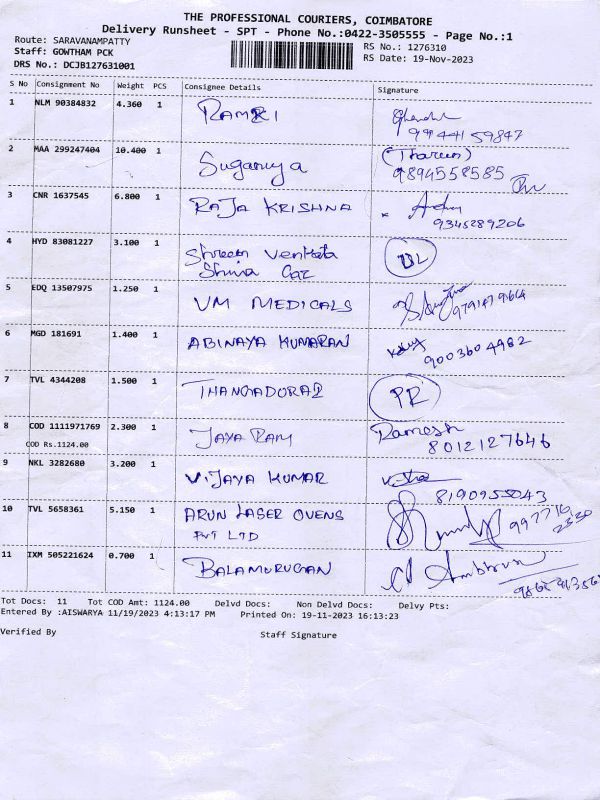 THE PROFESSIONAL COURIERS, COIMBATORE
Delivery Runsheet - SPT - Phone No.:0422-3505555 - Page No.:1
Route: SARAVANAMPATTY
RS No.: 1276310
Staff: GOWTHAM PCK
RS Date: 19-Nov-2023
DRS No.: DCJB127631001
S No Consignment No Weight PCS Consignee Details Signature
1 NLM 90384832 4.360 1 RAMKI
9944159847
2 MAA 299247404 10.400 1 Suganya (Thareen)
9894558585
3 CNR 1637545 6.800 1 RAJA KRISHNA
9345289206
4 HYD 83081227 3.100 1 Shreem Venkata DL
Shiva Car
5 EDQ 13507975 1.250 1 VM MEDICALS
6 MGD 181691 1.400 1 ABINAYA KUMARAN
9003604982
7 TVL 4344208 1.500 1 THANGADORAI PR
8 COD 1111971769 2.300 1 JAYA RAM Ramesh
COD Rs.1124.00 8012127646
9 NKL 3282680 3.200 1 VIJAYA KUMAR
8190955043
10 TVL 5658361 5.150 1 ARUN LASER OVENS
PVT LTD
11 IXM 505221624 0.700 1 BALAMURUGAN
Tot Docs: 11 Tot COD Amt: 1124.00 Delvd Docs: Non Delvd Docs: Delvy Pts:
Entered By :AISWARYA 11/19/2023 4:13:17 PM Printed On: 19-11-2023 16:13:23
Verified By Staff Signature